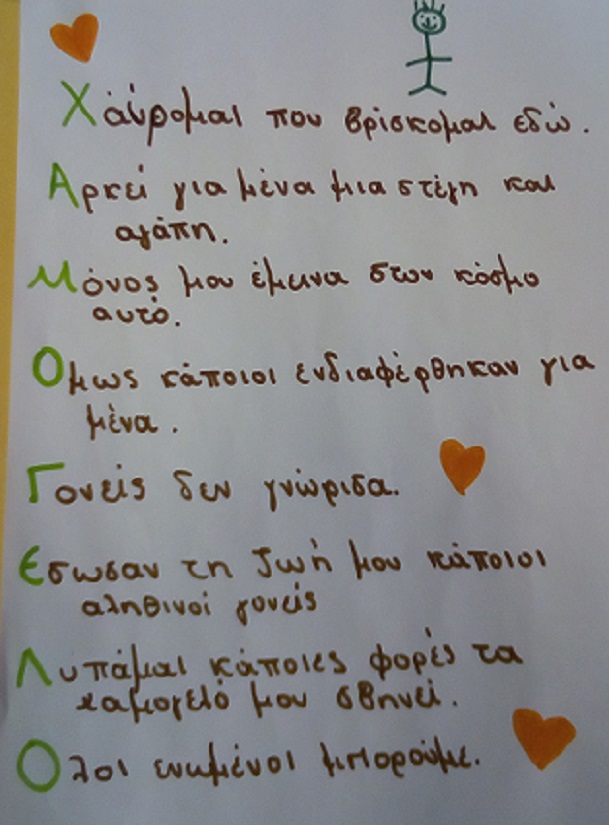 Χαίρομαι που βρίσκομαι εδώ.
Αρκεί για μένα μια στέγη και
αγάπη.
Μόνος μου έμεινα στον κόσμο
αυτό.
Ομως κάποιοι ενδιαφέρθηκαν για
μένα.
Γονείς δεν γνώρισα.
Εσωσαν τη ζωή μου κάποιοι
αληθινοί γονείς
Λυπάμαι κάποιες φορές τα
χαμογελό μου σβηνεί.
Ολοι ενωμένοι μπορούμε.